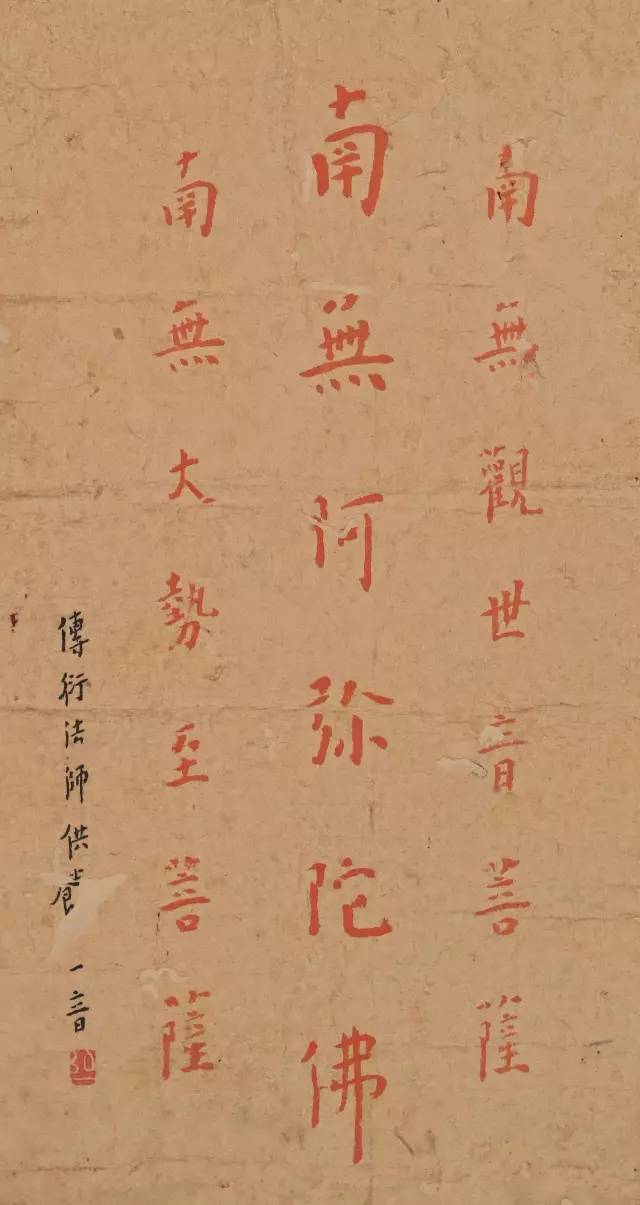 南無觀世音菩薩
南無阿弥陀佛
南無大勢至菩薩
傳衍法師供養
一音